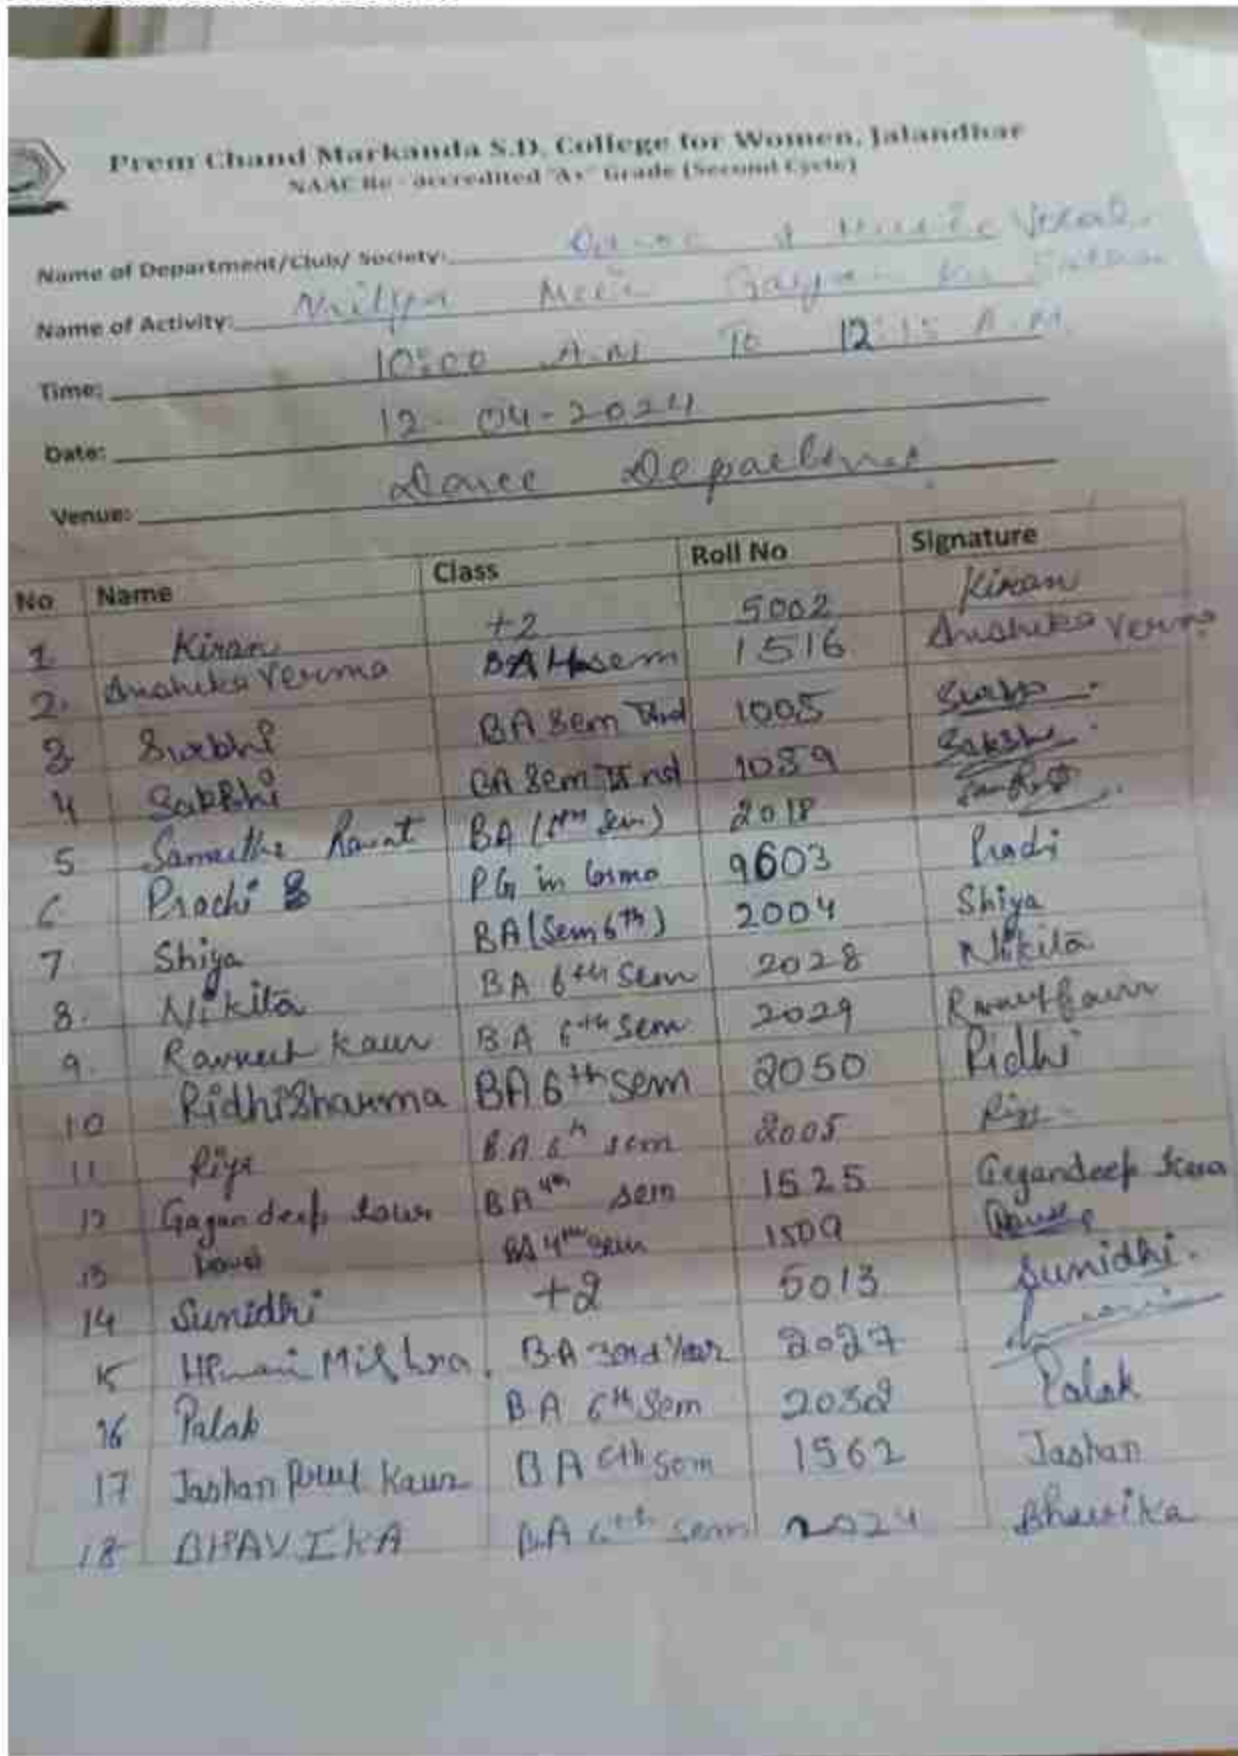 Prem Chand Markanda S.D. College for Women, Jalandhar
NAAC Re-accredited "A+" Grade (Second Cycle)
Name of Department/Club/ Society: Dance & Music Vocal
Name of Activity: Nritya Mein Gayan ka
Time: 10:00 A.M To 12:15 A.M.
Date: 12-04-2024
Venue: Dance Department
No Name Class Roll No Signature
1 Kiran +2 5002 Kiran
2. Anshika Verma BA sem 1516 Anshika Verma
3 Surbhi BA Sem 1005
4 Sakshi BA Sem IInd 1089 Sakshi
5 Rawat BA 2018
6 Prachi PG in Cosmo 9603 Prachi
7 Shiya BA (Sem 6th) 2004 Shiya
8. Nikita BA 6th Sem 2028 Nikita
9. Kaur BA 6th Sem 2029
10 Ridhi Sharma BA 6th sem 2050 Ridhi
11 Riya BA 6th sem 2005 Riya
12 Gagandeep Kaur BA 4th sem 1525 Gagandeep Kaur
13 BA 4th sem 1509
14 Sunidhi +2 5013 Sunidhi.
15 Mishra. BA 3rd Year 2027
16 Palak BA 6th Sem 2038 Palak
17 Jashan Kaur BA 6th sem 1562 Jashan
18 BHAVIKA BA 6th sem 2024 Bhavika